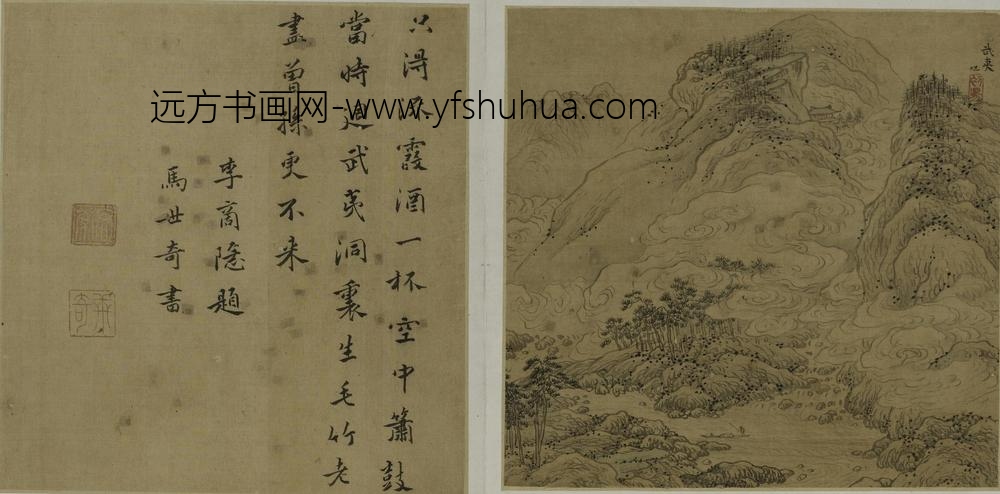 武夷
只得流霞酒一杯空中簫鼓
當時迴武夷洞裏生毛竹老
盡曾孫更不来
李商隱題
馬世奇書
远方书画网-www.yfshuhua.com